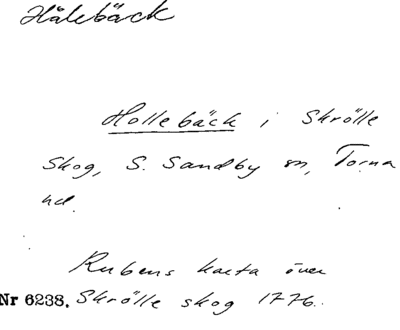 Hålebäck
Hollebäck i Skrölle
Skog, S. Sandby sn, Torna
hd.
Rubens karta över
Nr 6238. Skrölle skog 1776.